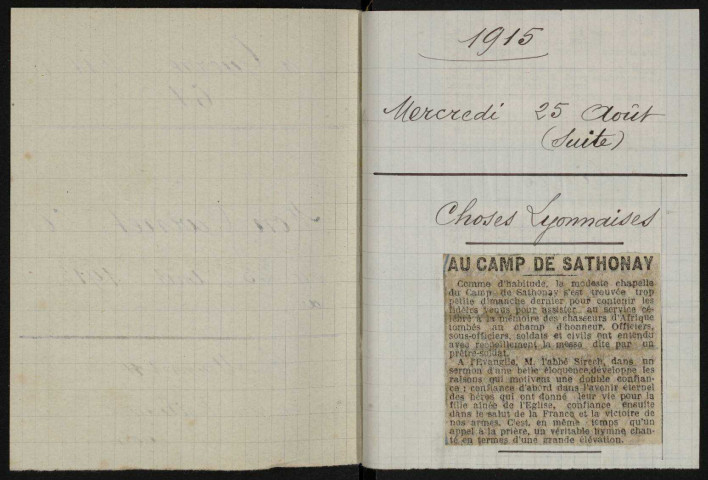 1915
Mercredi 25 Août
(Suite)
Choses Lyonnaises
AU CAMP DE SATHONAY
Comme d'habitude, la modeste chapelle
du Camp de Sathonay s'est trouvée trop
petite dimanche dernier pour contenir les
fidèles venus pour assister au service cé-
lébré à la mémoire des chasseurs d'Afrique
tombés au champ d'honneur. Officiers,
sous-officiers, soldats et civils ont entendu
avec recueillement la messe dite par un
prêtre-soldat.
A l'Evangile, M. l'abbé Sirech, dans un
sermon d'une belle éloquence, développe les
raisons qui motivent une double confian-
ce : confiance d'abord dans l'avenir éternel
des héros qui ont donné leur vie pour la
fille aînée de l'Eglise, confiance ensuite
dans le salut de la France et la victoire de
nos armes. C'est, en même temps qu'un
appel à la prière, un véritable hymne chan-
té en termes d'une grande élévation.